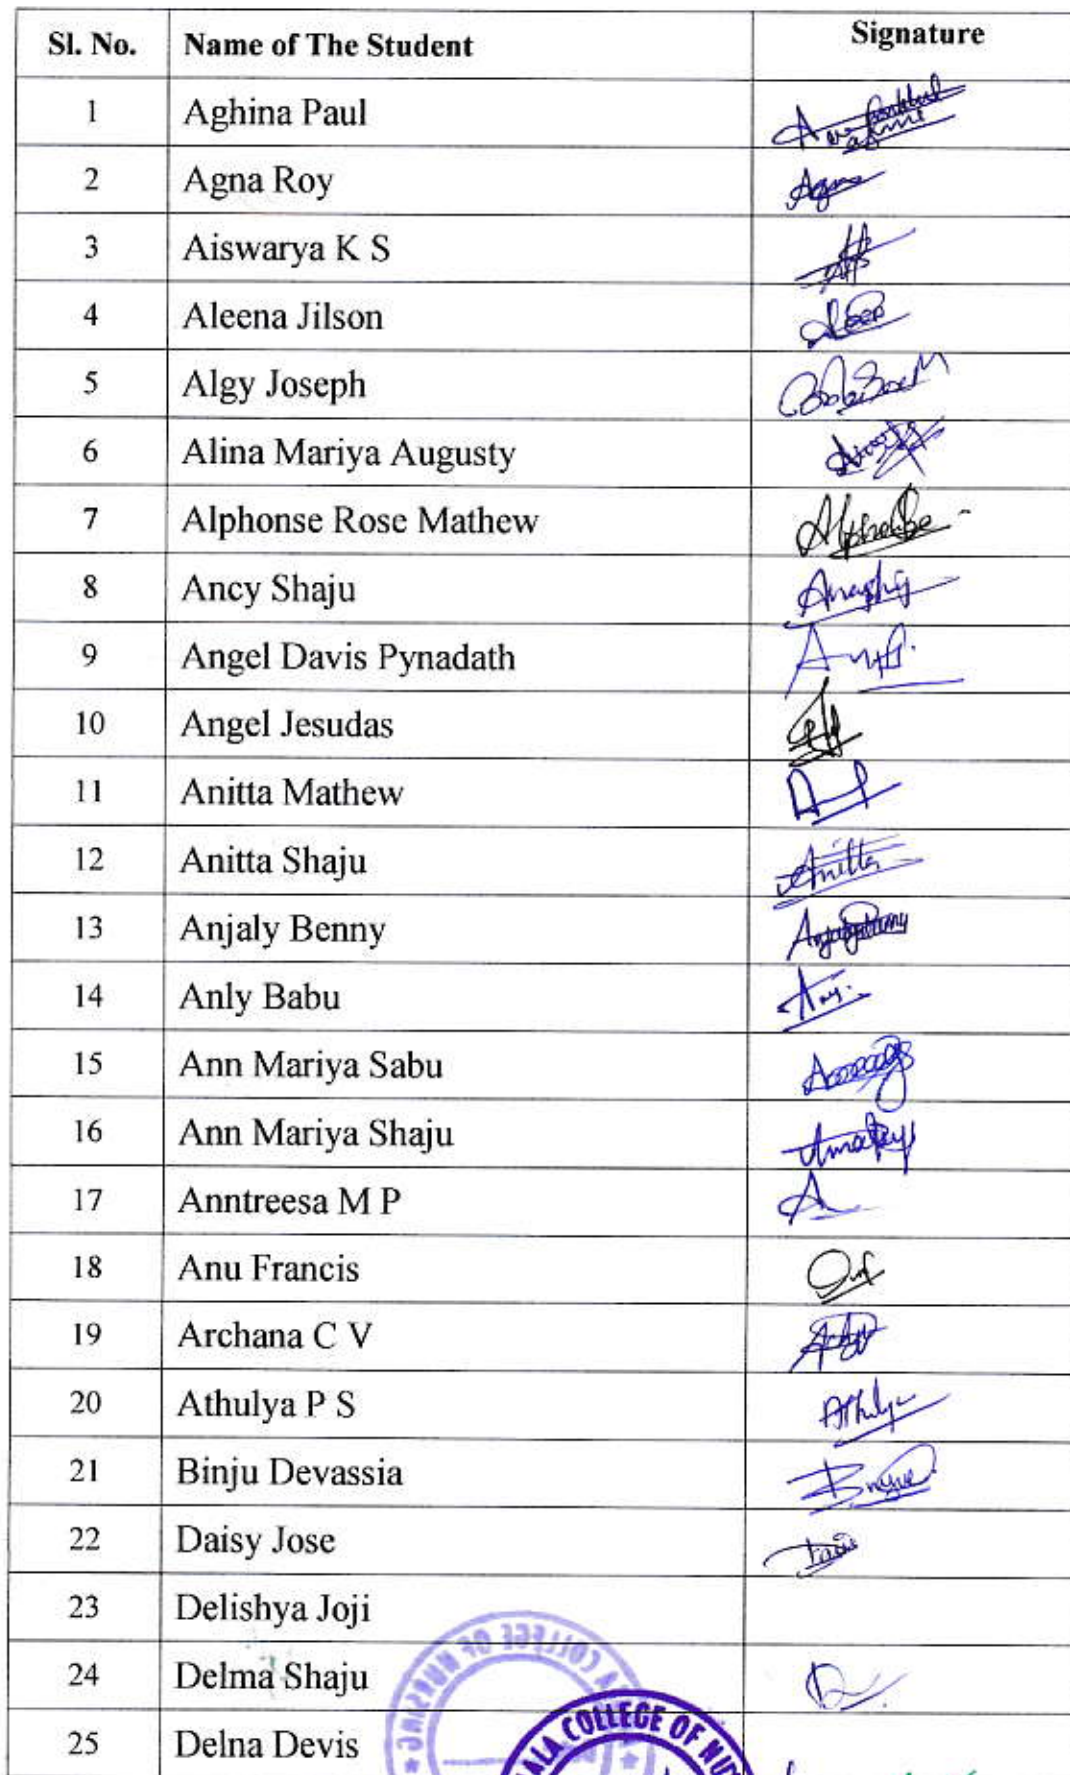 Sl. No. Name of The Student Signature
1 Aghina Paul
2 Agna Roy Agna
3 Aiswarya K S
4 Aleena Jilson
5 Algy Joseph
6 Alina Mariya Augusty
7 Alphonse Rose Mathew
8 Ancy Shaju
9 Angel Davis Pynadath
10 Angel Jesudas
11 Anitta Mathew
12 Anitta Shaju Anitta
13 Anjaly Benny
14 Anly Babu
15 Ann Mariya Sabu
16 Ann Mariya Shaju
17 Anntreesa M P
18 Anu Francis
19 Archana C V
20 Athulya P S Athulya
21 Binju Devassia
22 Daisy Jose
23 Delishya Joji
24 Delma Shaju
25 Delna Devis
COLLEGE OF NURSING
COLLEGE OF